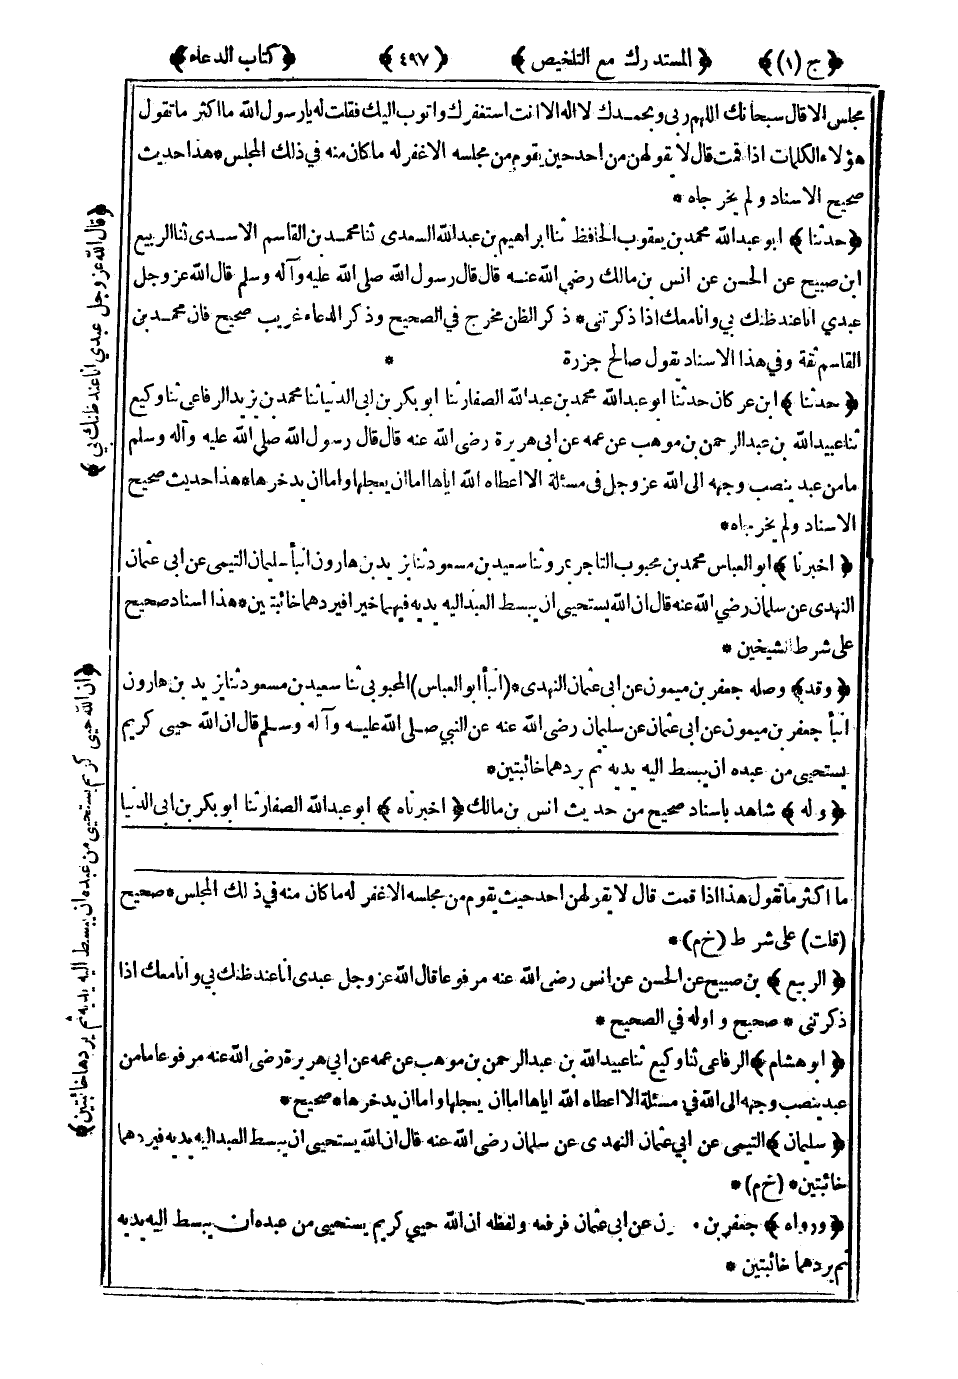 ﴿ج (١)﴾ ﴿المستدرك مع التلخيص﴾ ﴿٤٩٧﴾ ﴿كتاب الدعاء﴾
مجلس الا قال سبحانك اللهم ربى وبحمدك لا اله الا انت استغفرك واتوب اليك فقلت له يا رسول الله ما اكثر ما تقول
هؤلاء الكلمات اذا قمت قال لا يقولهن من احد حين يقوم من مجلسه الا غفر له ما كان منه في ذلك المجلس * هذا حديث
صحيح الاسناد ولم يخرجاه *
﴿حدثنا﴾ ابو عبدالله محمد بن يعقوب الحافظ ثنا ابراهيم بن عبدالله السعدى ثنا محمد بن القاسم الاسدى ثنا الربيع
ابن صبيح عن الحسن عن انس بن مالك رضي الله عنه قال قال رسول الله صلى الله عليه وآله وسلم قال الله عز وجل
عبدي انا عند ظنك بي وانا معك اذا ذكرتنى * ذكر الظن مخرج في الصحيح وذكر الدعاء غريب صحيح فان محمد بن
القاسم ثقة وفي هذا الاسناد يقول صالح جزرة *
﴿حدثنا﴾ ابن عركان حدثنا ابو عبدالله محمد بن عبدالله الصفار ثنا ابو بكر بن ابى الدنيا ثنا محمد بن يزيد الرفاعى ثنا وكيع
ثنا عبيد الله بن عبدالرحمن بن موهب عن عمه عن ابى هريرة رضى الله عنه قال قال رسول الله صلى الله عليه وآله وسلم
ما من عبد ينصب وجهه الى الله عز وجل فى مسئلة الا اعطاه الله اياها اما ان يعجلها واما ان يدخرها * هذا حديث صحيح
الاسناد ولم يخرجاه *
﴿اخبرنا﴾ ابو العباس محمد بن محبوب التاجر بمرو ثنا سعيد بن مسعود ثنا يزيد بن هارون انبأ سليمان التيمى عن ابى عثمان
النهدى عن سلمان رضي الله عنه قال ان الله يستحيى ان يبسط العبد اليه يديه فيهما خيرا فيردهما خائبتين * هذا اسناد صحيح
على شرط الشيخين *
﴿وقد﴾ وصله جعفر بن ميمون عن ابى عثمان النهدى * (انبأ ابو العباس) المحبوبى ثنا سعيد بن مسعود ثنا يزيد بن هارون
انبأ جعفر بن ميمون عن ابى عثمان عن سلمان رضى الله عنه عن النبي صلى الله عليه وآله وسلم قال ان الله حيى كريم
يستحيى من عبده ان يبسط اليه يديه ثم يردهما خائبتين *
﴿وله﴾ شاهد باسناد صحيح من حديث انس بن مالك ﴿اخبرناه﴾ ابو عبدالله الصفار ثنا ابو بكر بن ابى الدنيا
ما اكثر ما تقول هذا اذا قمت قال لا يقولهن احد حيث يقوم من مجلسه الا غفر له ما كان منه في ذلك المجلس * صحيح
(قلت) على شرط (خ م) *
﴿الربيع﴾ بن صبيح عن الحسن عن انس رضى الله عنه مرفوعا قال الله عز وجل عبدى انا عند ظنك بي وانا معك اذا
ذكرتنى * صحيح و اوله في الصحيح *
﴿ابو هشام﴾ الرفاعى ثنا وكيع ثنا عبيد الله بن عبدالرحمن بن موهب عن عمه عن ابى هريرة رضى الله عنه مرفوعا ما من
عبد ينصب وجهه الى الله في مسئلة الا اعطاه الله اياها اما ان يعجلها واما ان يدخرها * صحيح *
﴿سليمان﴾ التيمى عن ابي عثمان النهدى عن سلمان رضى الله عنه قال ان الله يستحيى ان يبسط العبد اليه يديه فيردهما
خائبتين * (خ م) *
﴿ورواه﴾ جعفر بن عن ابى عثمان فرفعه ولفظه ان الله حيي كريم يستحيى من عبده ان يبسط اليه يديه
ثم يردهما خائبتين *
﴿قال الله عز وجل عبدي انا عند ظنك بي﴾
﴿ان الله حيى كريم يستحيى من عبده ان يبسط اليه يديه ثم يردهما خائبتين﴾